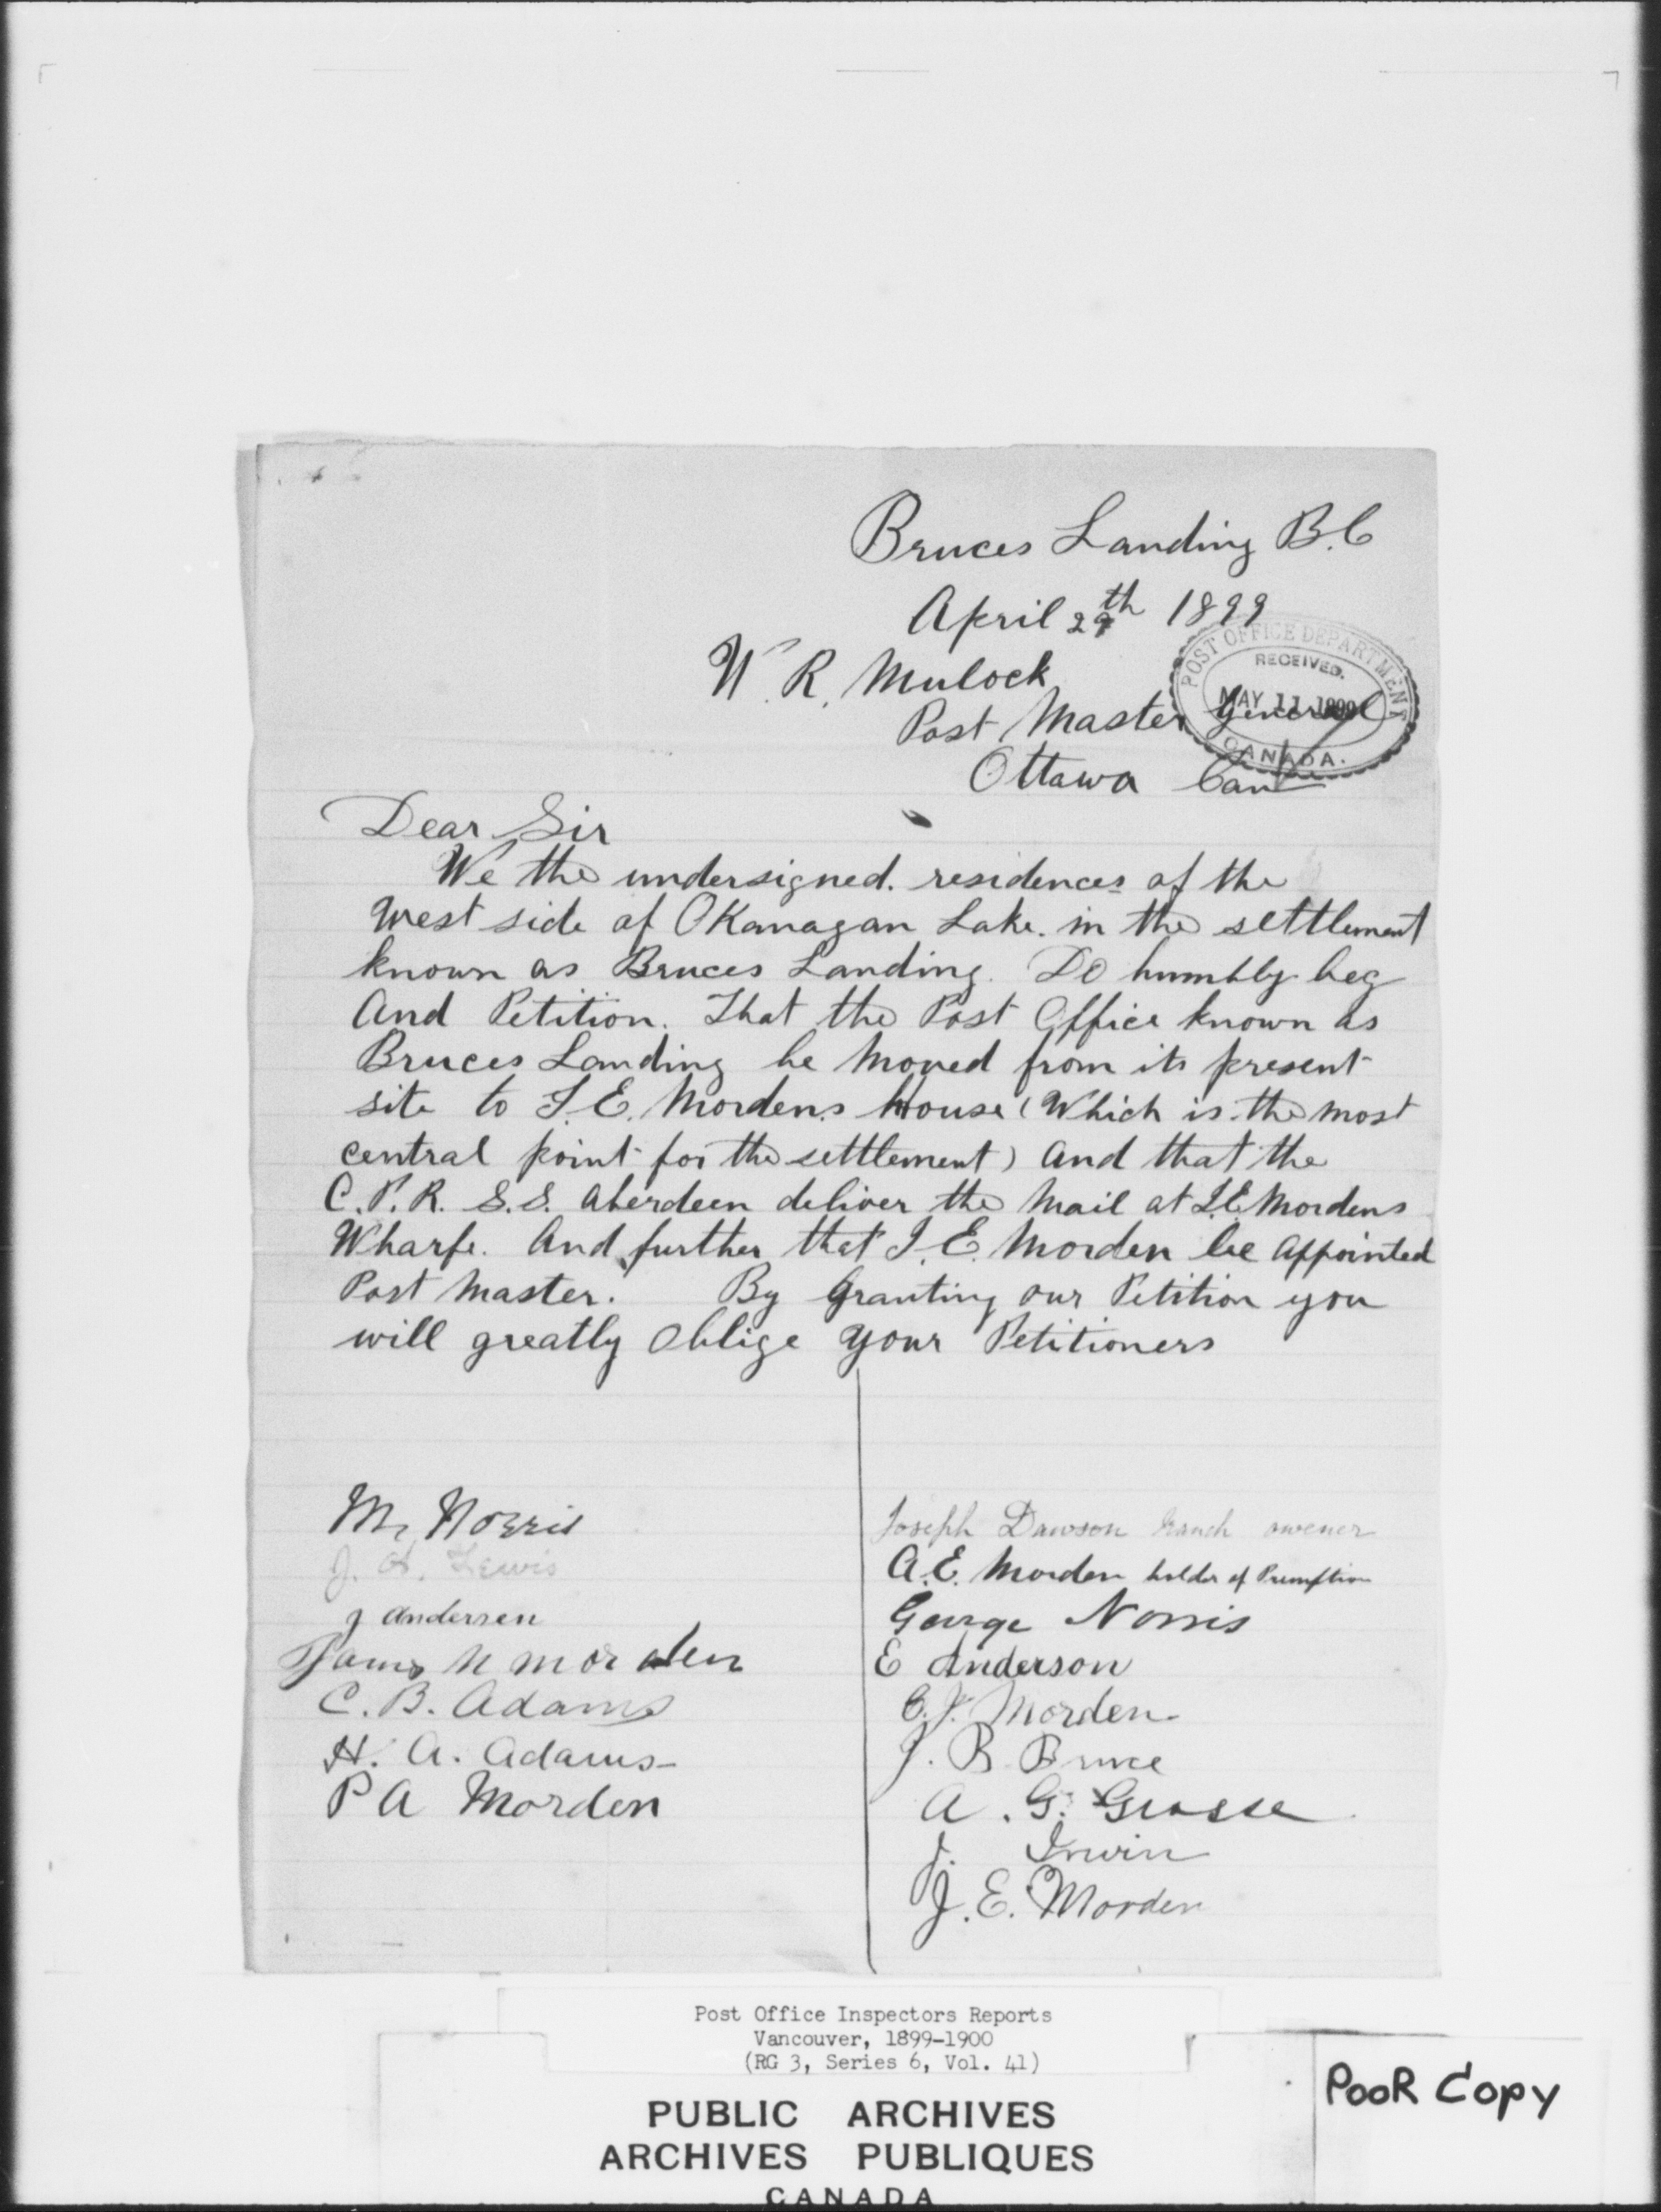 Bruces Landing B.C
April 29th 1899
W. R. Mulock
Post Master General
Ottawa Can
POST OFFICE DEPARTMENT
RECEIVED.
MAY 11 1899
CANADA.
Dear Sir
We the undersigned. residences of the
West side of OKanagan Lake. in the settlement
known as Bruces Landing. Do humbly beg
And Petition. That the Post Office known as
Bruces Landing be Moved from its present
site to J. E. Mordens House (Which is the most
central point for the settlement) And that the
C. P. R. S.S. Aberdeen deliver the Mail at J.E. Mordens
Wharfe. And further that J. E. Morden be Appointed
Post Master. By Granting our Petition you
will greatly Oblige your Petitioners
M. Norris
J. H. Lewis
J Andersen
James N Morden
C. B. Adams
H. A. Adams
P A Morden
Joseph Dawson Ranch owener
A. E. Morden holder of Premption
George Norris
E Anderson
E. J. Morden
J. B Bruce
A. G. Grasse
J. Irwin
J. E. Morden
Post Office Inspectors Reports
Vancouver, 1899-1900
(RG 3, Series 6, Vol. 41)
PUBLIC ARCHIVES
ARCHIVES PUBLIQUES
CANADA
POOR COPY